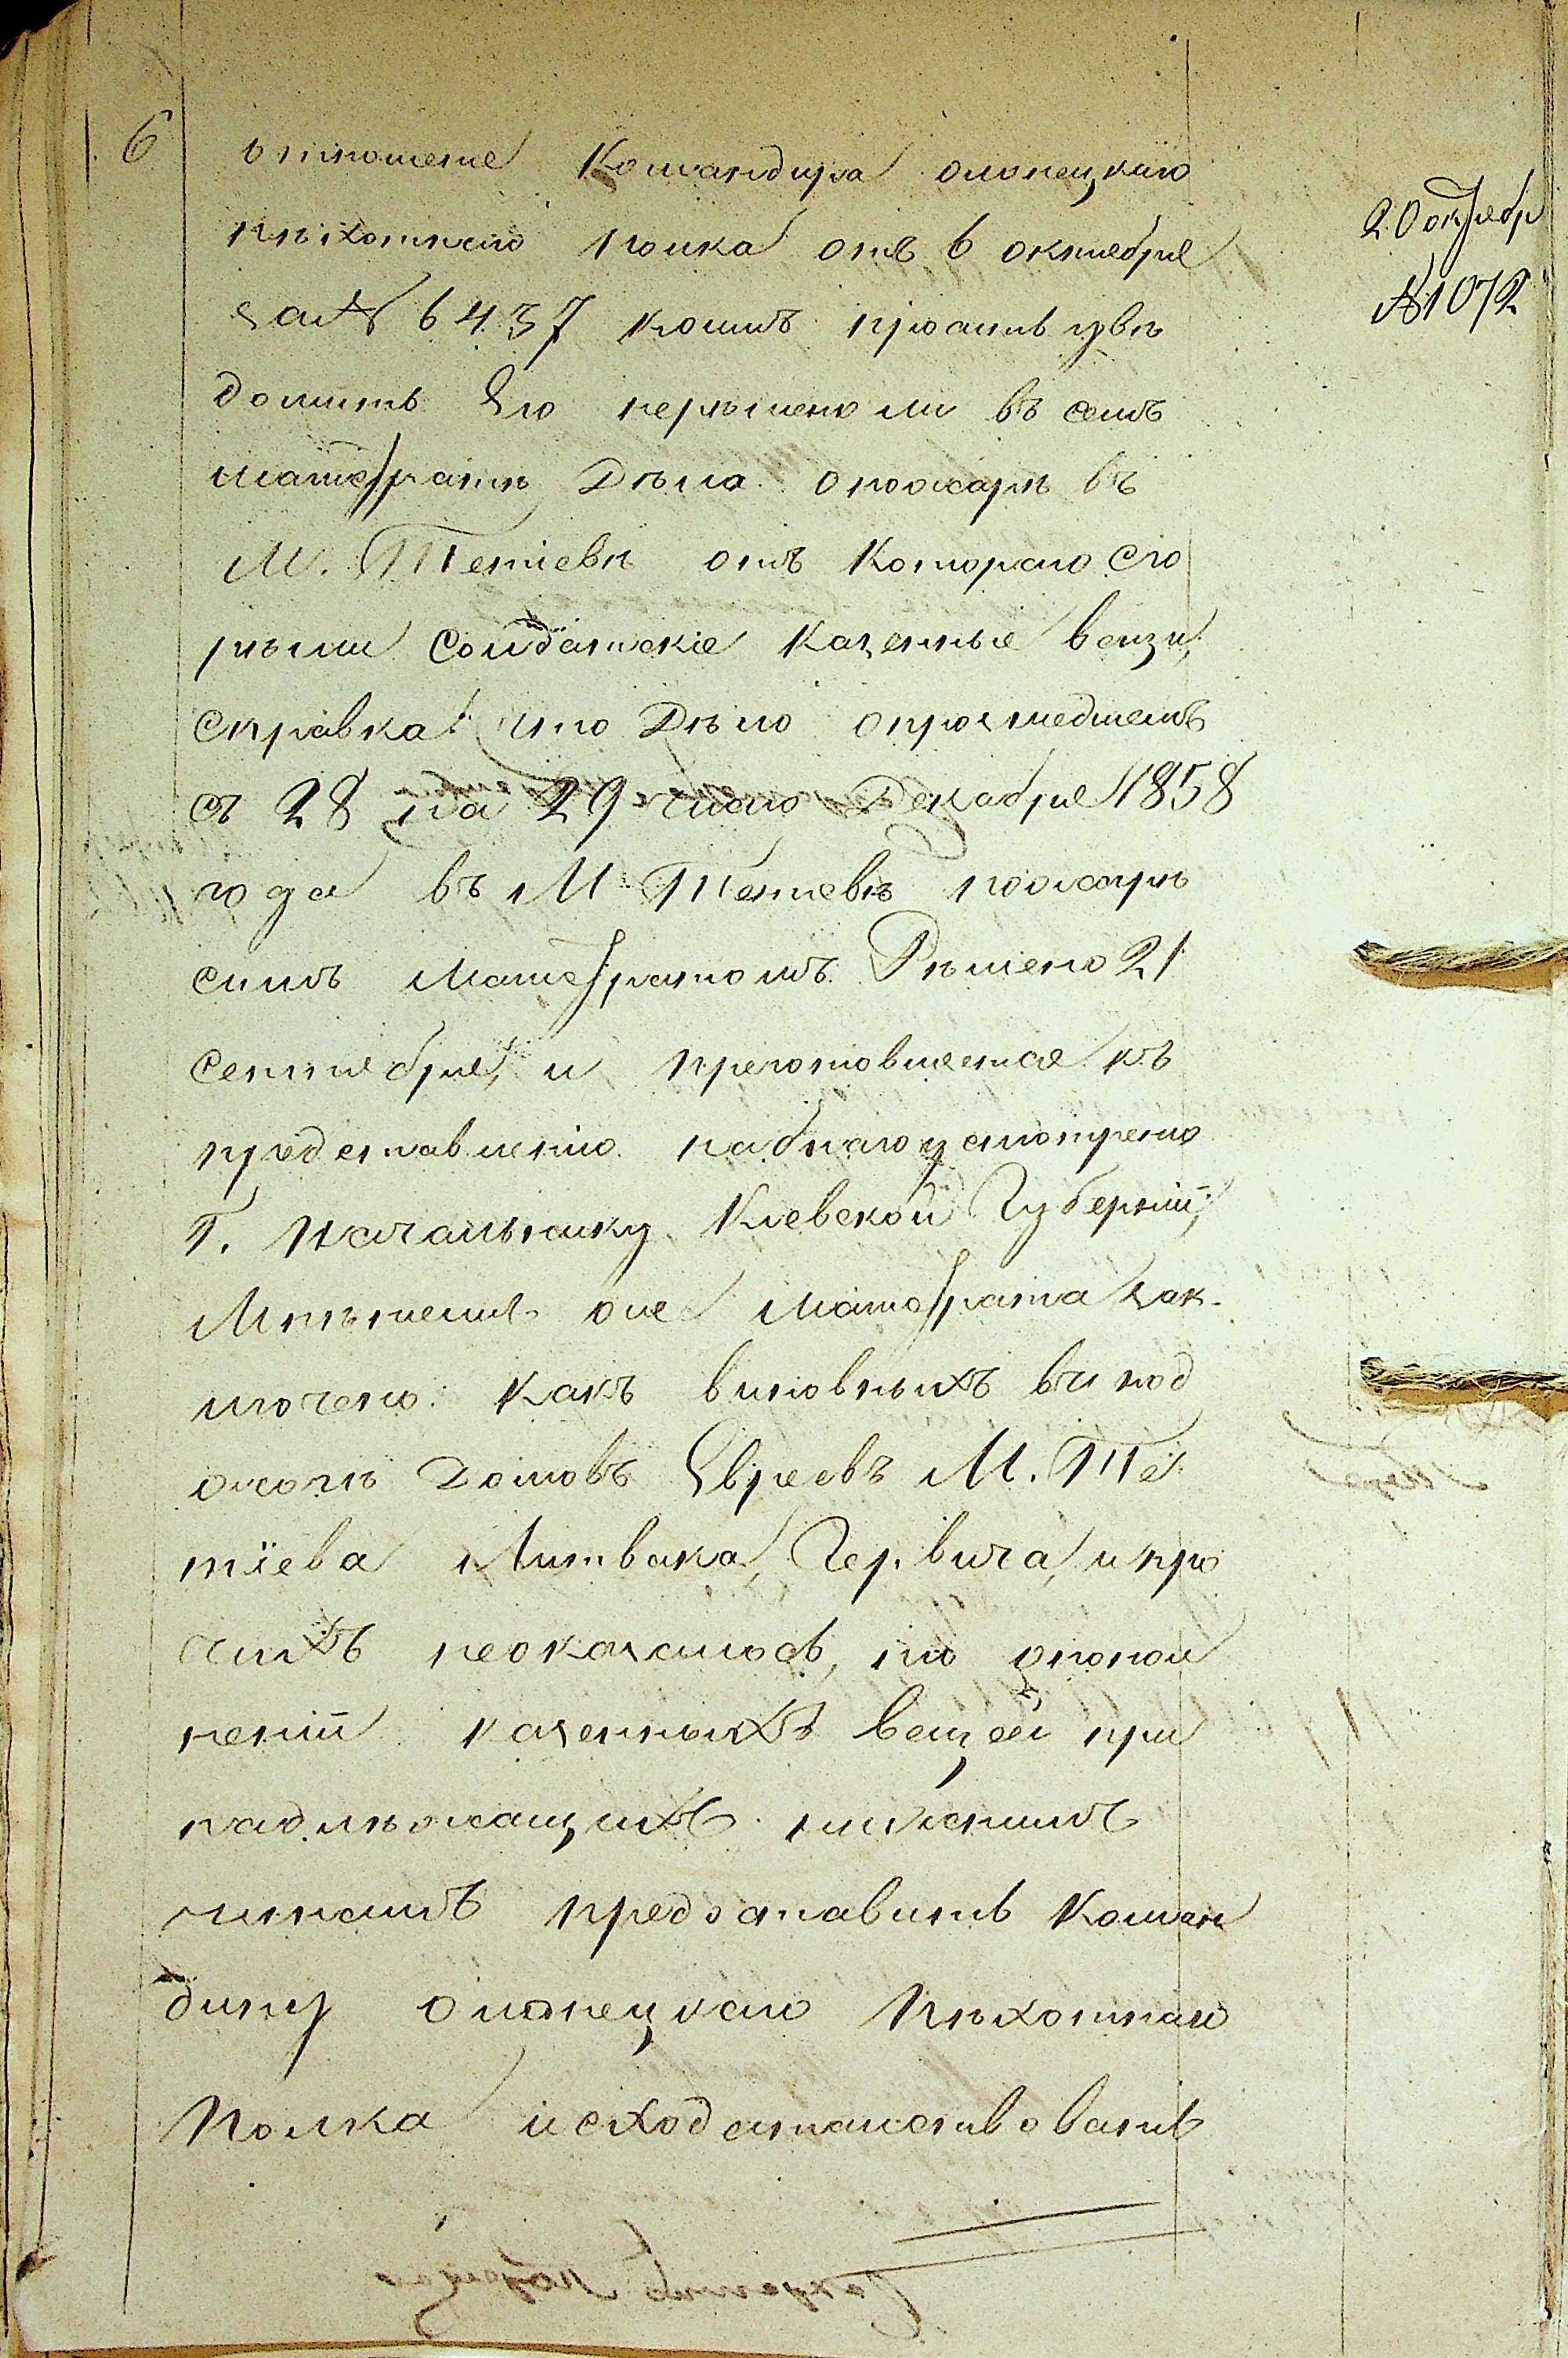 6
отношеніе Командира олонецкаго
пѣхотнаго полка отъ 6 октебря
за № 6437 коимъ проситъ увѣ
домить Его нерѣшено ли въ семъ
Магестратѣ Дѣла о пожарѣ въ
М. Тетіевѣ отъ котораго сго
рѣли Солдатскіе казенные вещи,
справка: что Дѣло о прошедшемъ
съ 28 на 29 число Декабря 1858
года въ М Тетіевѣ пожарѣ
симъ Магестратомъ Рѣшено 21
сентебря, и преготовляется къ
представленію на благоусмотреніе
Г. Начальнику Кіевской Губерніи,
Мнѣніемъ оне Магестрата зак-
лючено: Какъ виновныхъ въ под
жогѣ Домовъ Евреевъ М. Те
тіева Литвака, Гервича, и про
чихъ неоказалось, но о пополн
неніи казенныхъ вещей при
надлѣжащихъ нижнимъ
чинамъ предоставить Коман
диру олонецкаго Пѣхотнаго
Полка исходатайствовать
20 октебр
№ 1072